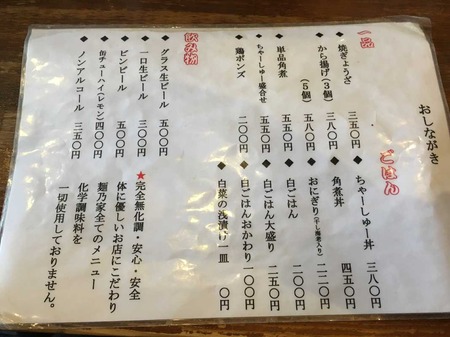 おしながき
一品
◆ 焼ぎょうざ 三五〇円
◆ から揚げ(3個) 三八〇円
(5個) 五八〇円
◆ 単品角煮 五五〇円
◆ ちゃーしゅー盛合せ 五五〇円
◆ 鶏ポンズ 二〇〇円
ごはん
◆ ちゃーしゅー丼 三八〇円
◆ 角煮丼 四五〇円
◆ おにぎり(干し海老入り) 一二〇円
◆ 白ごはん 二〇〇円
◆ 白ごはん大盛り 二五〇円
◆ 白ごはんおかわり 一〇〇円
◆ 白菜の浅漬け一皿 〇円
飲み物
◆ グラス生ビール 五〇〇円
◆ 一口生ビール 三〇〇円
◆ ビンビール 五〇〇円
◆ 缶チューハイ(レモン) 四〇〇円
◆ ノンアルコール 三五〇円
★完全無化調・安心・安全
体に優しいお店にこだわり
麺乃家全てのメニュー
化学調味料を
一切使用しておりません。